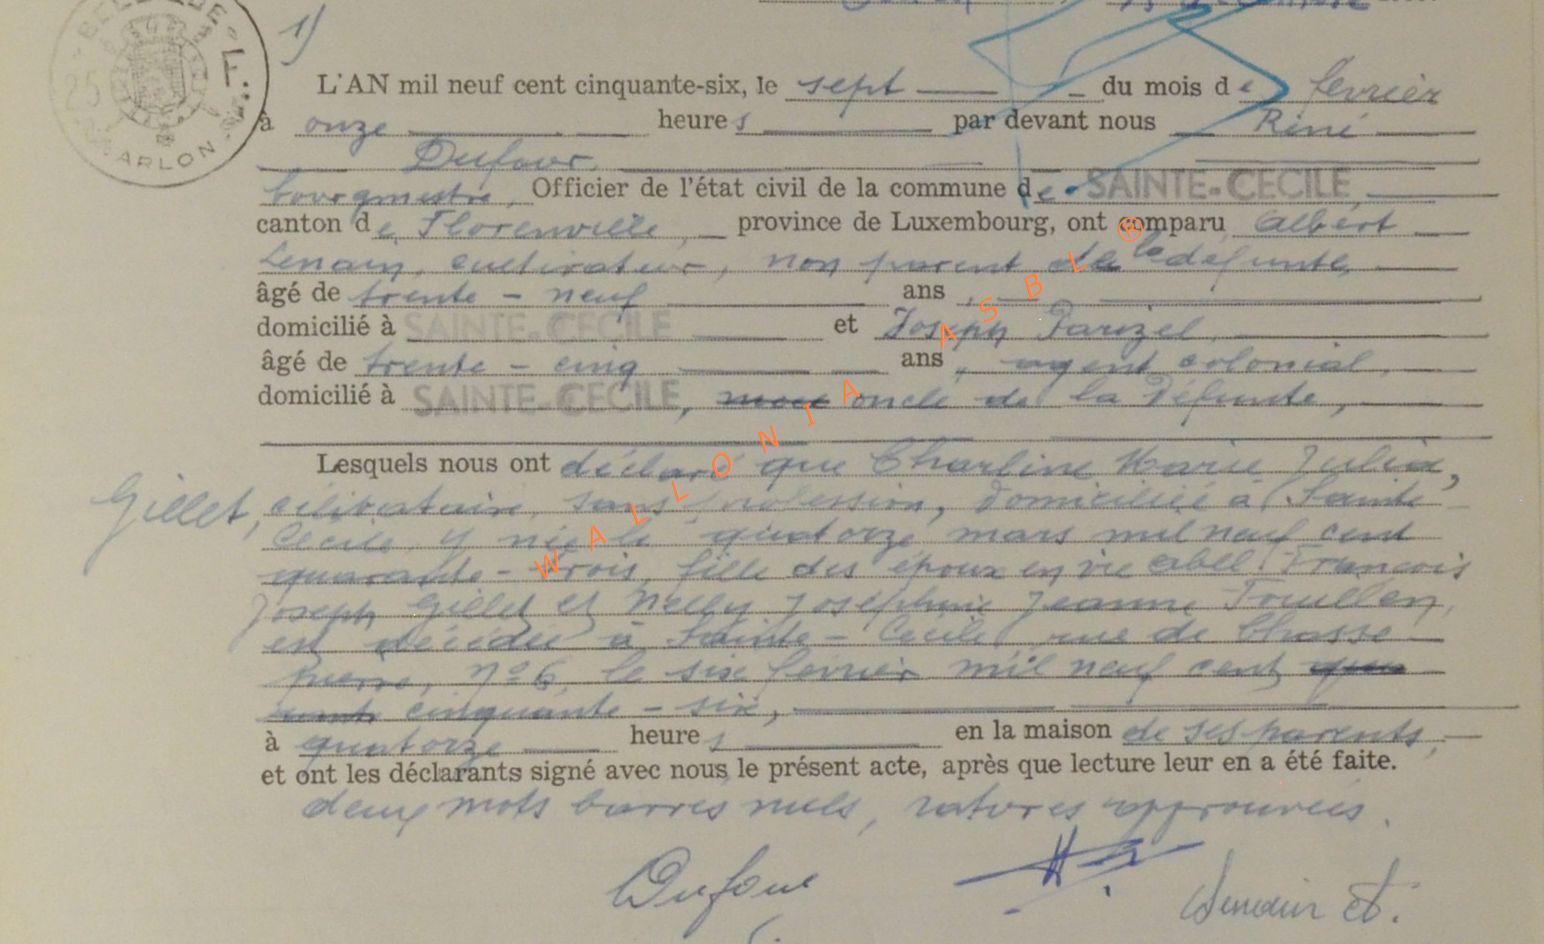 1)
BELGIQUE
ARLON
25 F
L'AN mil neuf cent cinquante-six, le sept du mois de fevrier
à onze heures par devant nous Réné
Dufour,
bourgmestre, Officier de l'état civil de la commune de SAINTE-CECILE,
canton de Florenville, province de Luxembourg, ont comparu Albert
Lenain, cultivateur, non parent de la défunte,
âgé de trente-neuf ans,
domicilié à SAINTE-CECILE et Joseph Parizel,
âgé de trente-cinq ans, agent colonial,
domicilié à SAINTE-CECILE, oncle de la Défunte,
Lesquels nous ont déclaré que Charline Marie Julia,
Gillet, célibataire, sans profession, domiciliée à Sainte-
Cécile, y née le quatorze mars mil neuf cent
quarante-trois, fille des époux en vie Abel François
Joseph Gillet et Nelly Joséphine Jeanne
est décédée à Sainte-Cécile, rue de Chasse-
pierre, n° 6, le six fevrier mil neuf cent
cinquante-six,
à quatorze heures en la maison de ses parents,
et ont les déclarants signé avec nous le présent acte, après que lecture leur en a été faite.
deux mots barrés nuls, ratures approuvées.
Dufour
WALLONIA ASBL ®